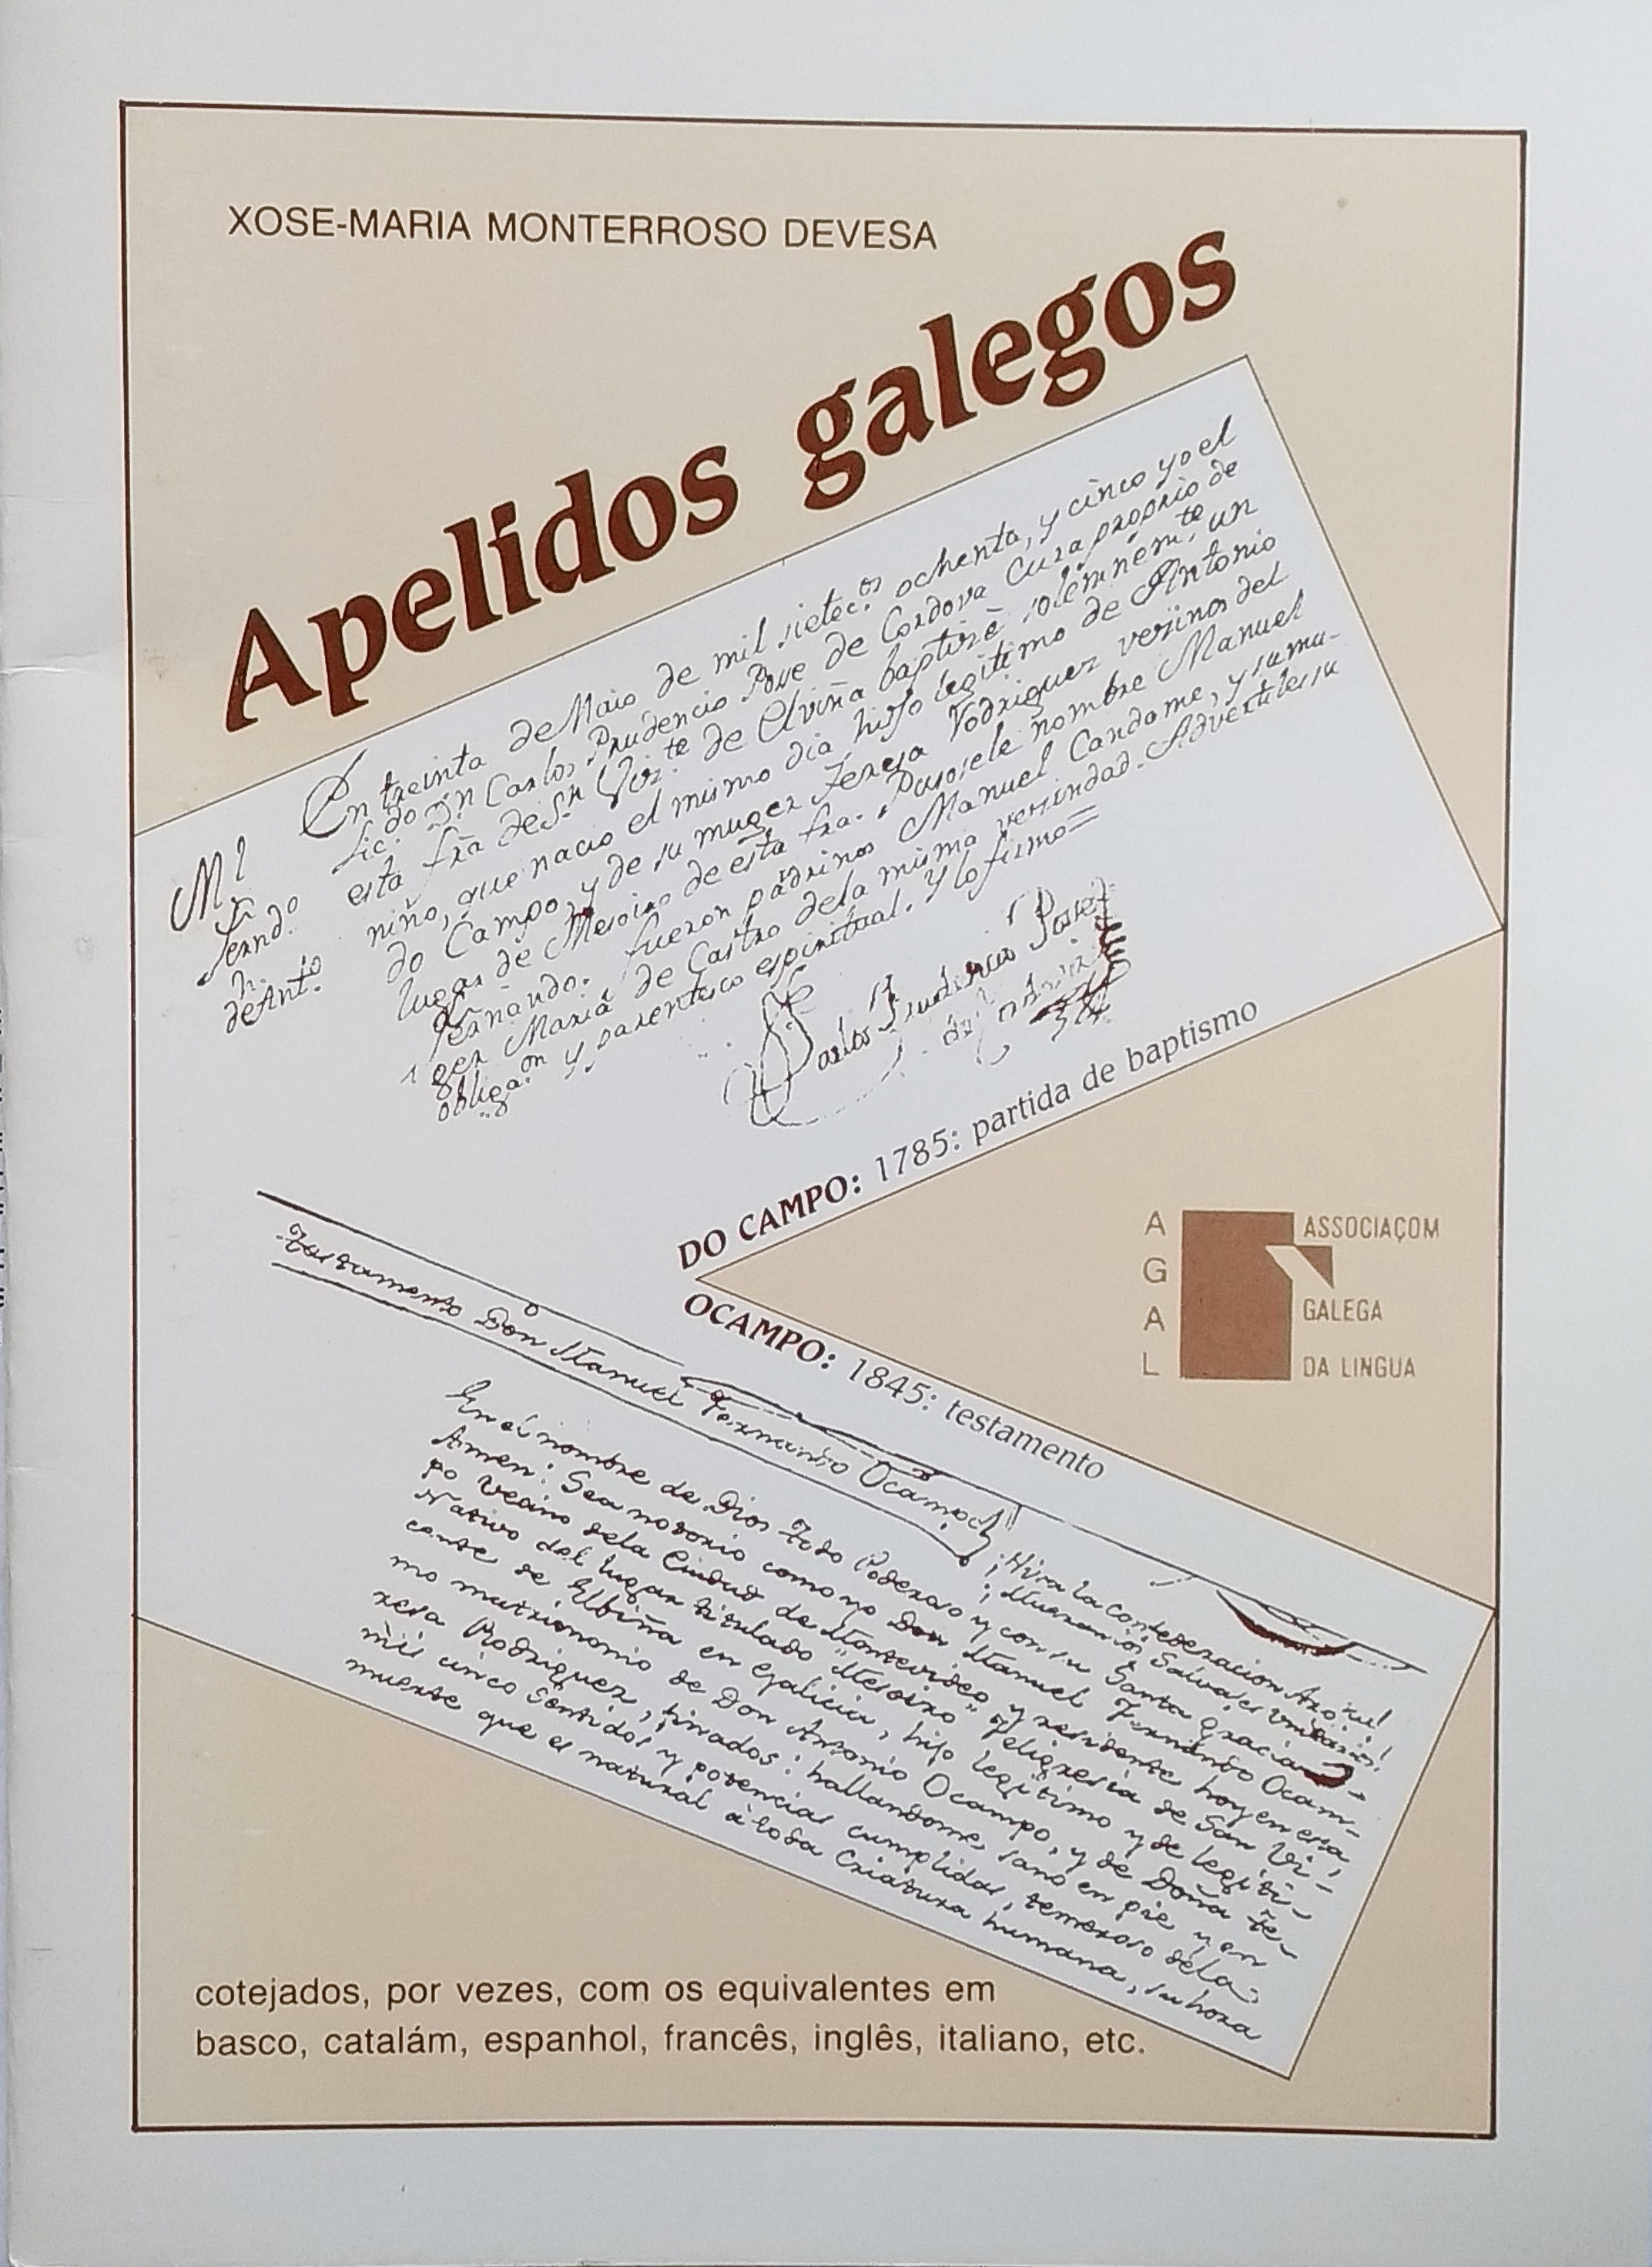 XOSE-MARIA MONTERROSO DEVESA
Apelidos galegos
En treinta de Maio de mil setec.os ochenta, y cinco yo el
Lic.do Dn Carlos Prudencio Pose de Cordova Cura proprio de
esta fra de Sn Viz.te de Elviña baptizè solemnem.te un
niño, que nacio el mismo dia hijo legitimo de Antonio
do Campo, y de su muger Teresa Rodriguez vezinos del
lugar de Mesoiro de esta fra. Pusosele nombre Manuel
Fernando. fueron padrinos Manuel Candame, y su mu-
ger Maria de Castro dela misma vezindad. Advertiles su
obligaon y parentesco espiritual. Y lo firmo=
Ml
Fernd.o
h.
de Ant.io
Carlos Prudencio Pose
de Cordova
DO CAMPO: 1785: partida de baptismo
A G A L
ASSOCIAÇOM
GALEGA
DA LINGUA
OCAMPO: 1845: testamento
Testamento Don Manuel Fernando Ocampo
¡Viva la Confederacion Arg.na!
¡Mueran los Salvajes Unitarios!
En el nombre de Dios Todo Poderoso y con su Santa gracia
Amen: Sea notorio como yo Don Manuel Fernando Ocam-
po Vecino dela Ciudad de Montevideo y residente hoy en esta,
Nativo del lugar titulado "Mesoiro" Feligresia de San Vi-
cente de Elbiña en Galicia, hijo legitimo y de legiti-
mo matrimonio de Don Antonio Ocampo, y de Doña Te-
resa Rodriguez, finados: hallandome sano en pie y en
mis cinco Sentidos y potencias cumplidas, temeroso dela
muerte que es natural à toda Criatura humana, su hora
cotejados, por vezes, com os equivalentes em
basco, catalám, espanhol, francês, inglês, italiano, etc.